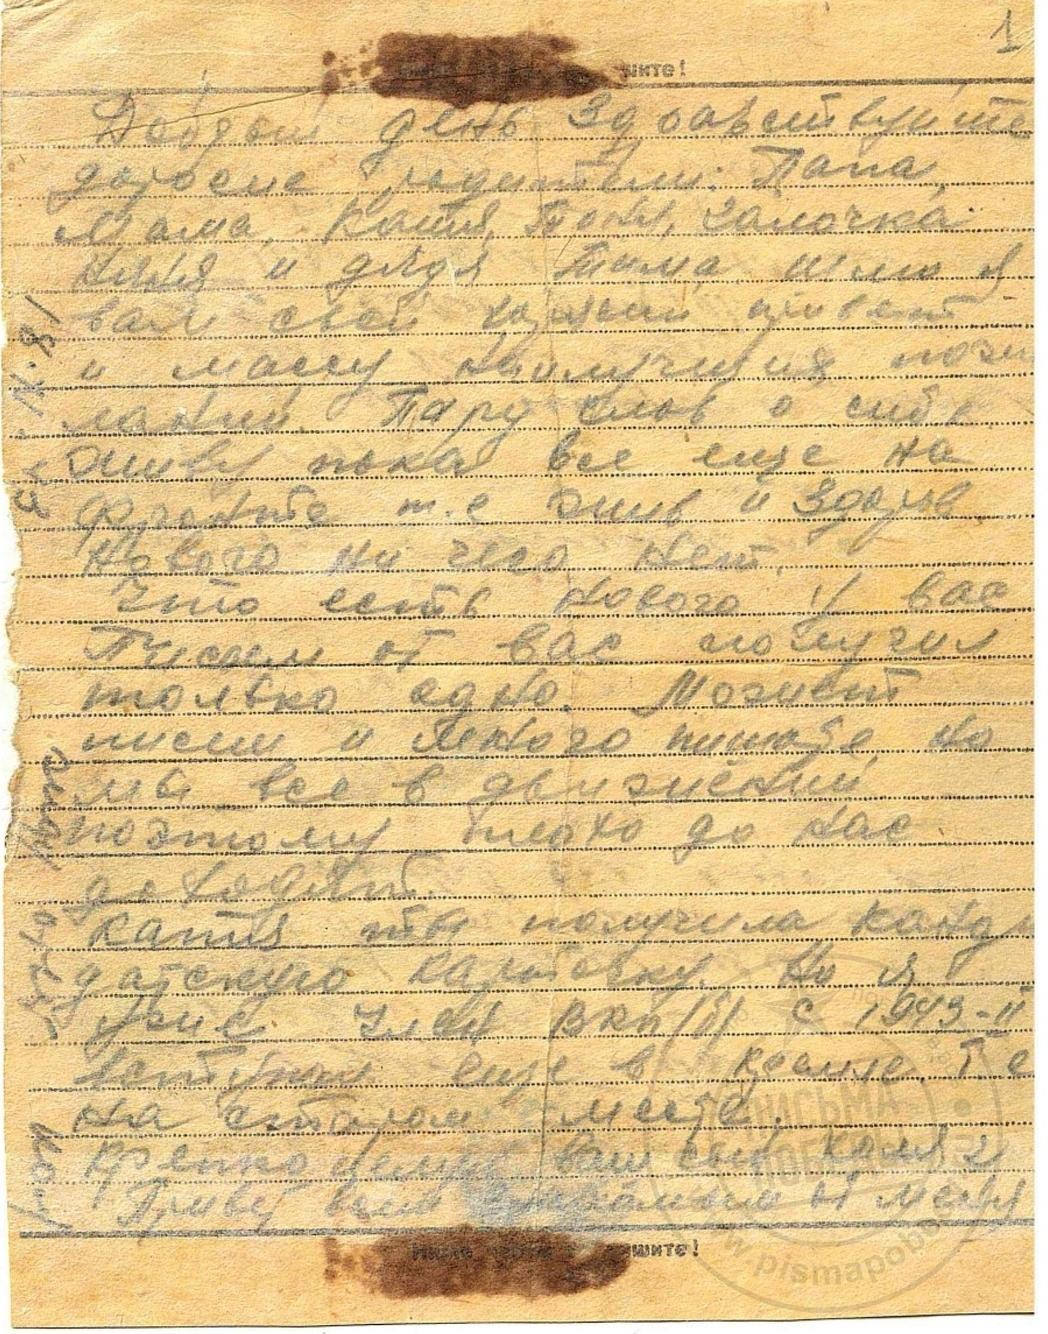 1
шите!
Добрый день Здравствуйте
дорогие родители: Папа,
Мама, Катя, Тоня, Галочка
няня и дядя Тима, шлю я
вам свой привет
и массу наилучших поже
ланий. Пару слов о себе
Живу пока все еще на
фронте т.е жив и здоров.
Нового ни чего нет.
Что есть нового у вас
Писем от вас получил
только одно. Может
писем и много пишете, но
мы все в движении
поэтому плохо до нас
доходят.
Катя ты получила канди
датскую карточку. Но я
уже член ВКП(б) с 1943-
Вступил еще в Кремле т.е
на старом месте.
Крепко целую ваш сын Коля
Приве всем знакомым от меня
Ниже черты не пишите!
ПИСЬМА
www.pismapobe